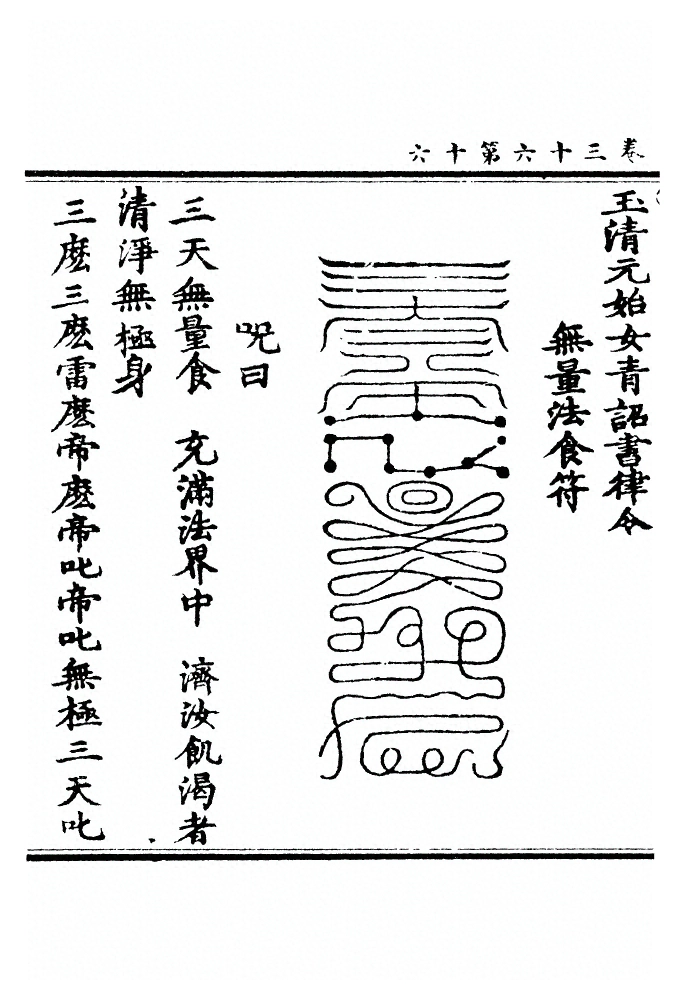 卷三十六第十六
玉清元始女青詔書律令
無量法食符
呪曰
三天無量食 充滿法界中 濟汝飢渴者
清淨無極身
三麽三麽雷麽帝麽帝叱帝叱無極三天叱